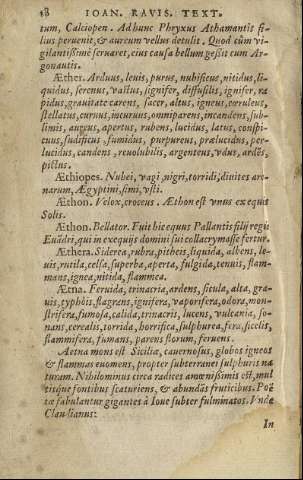 48 IOAN. RAVIS. TEXT.
tum, Calciopen. Ad hunc Phryxus Athamantis fi-
lius peruenit, & aureum vellus detulit. Quod cùm vi-
gilantissimè seruaret, eius causa bellum gessit cum Ar-
gonautis.
Æther. Arduus, leuis, purus, nubificus, nitidus, li-
quidus, serenus, vastus, signifer, diffusilis, ignifer, ra
pidus, grauitate carens, sacer, altus, igneus, cœruleus,
stellatus, curuus, incuruus, omniparens, incandens, sub-
limis, augeus, apertus, rubens, lucidus, latus, conspi-
cuus, sudificus, fumidus, purpureus, prælucidus, per-
lucidus, candens, reuolubilis, argenteus, vdus, ardẽs,
pictus.
Æthiopes. Nubei, vagi, nigri, torridi, diuites are-
narum, Ægyptini, simi, vsti.
Æthon. Velox, croceus. Æthon est vnus ex equis
Solis.
Æthon. Bellator. Fuit hic equus Pallantis filij regis
Euãdri, qui in exequijs domini sui collacrymasse fertur.
Æthera. Siderea, rubra, pitheis, liquida, albens, le-
uis, rutila, celsa, superba, aperta, fulgida, tenuis, flam-
mans, ignea, nitida, flammea.
Ætna. Feruida, trinacria, ardens, sicula, alta, gra-
uis, typhóis, flagrans, ignifera, vaporifera, odora, mon-
strifera, fumosa, calida, trinacris, lucens, vulcania, so-
nans, cerealis, torrida, horrifica, sulphurea, fera, sicelis,
flammifera, fumans, parens florum, feruens.
Aetna mons est Siciliæ, cauernosus, globos igneos
& flammas euomens, propter subterranei sulphuris na
turam. Nihilominus circa radices amœnissimus est, mul
tisque fontibus scaturiens, & abundãs fructibus. Poë
tæ fabulantur gigantes à Ioue subter fulminatos. Vnde
Claudianus:
In